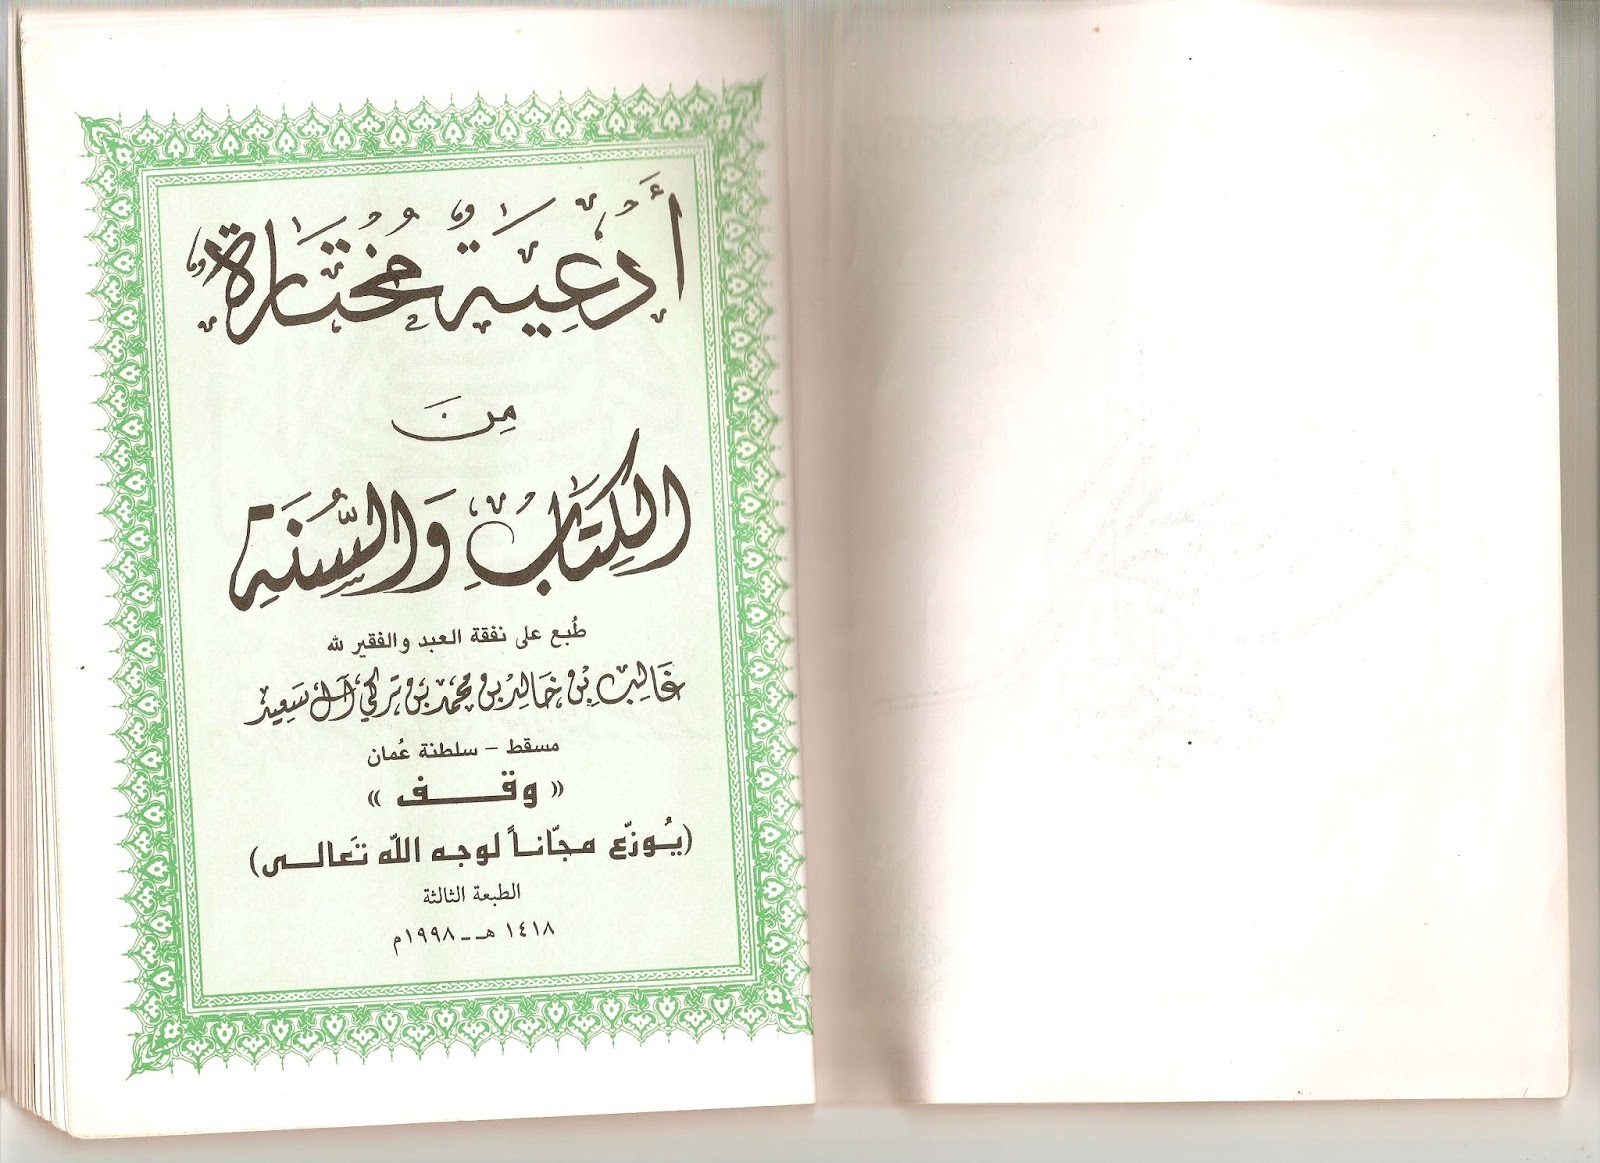 أَدْعِيَةٌ مُخْتَارَةٌ
مِنَ
الكِتَابِ وَالسُّنَةِ
طُبع على نفقة العبد والفقير لله
غَالِب بْن خَالِد بْن محمد بْن تركي آل سَعِيد
مسقط – سلطنة عُمان
« وقــــف »
(يُـوزّع مجّانـاً لوجه اللّه تَعالـى)
الطبعة الثالثة
١٤١٨ هـ ــ ١٩٩٨م